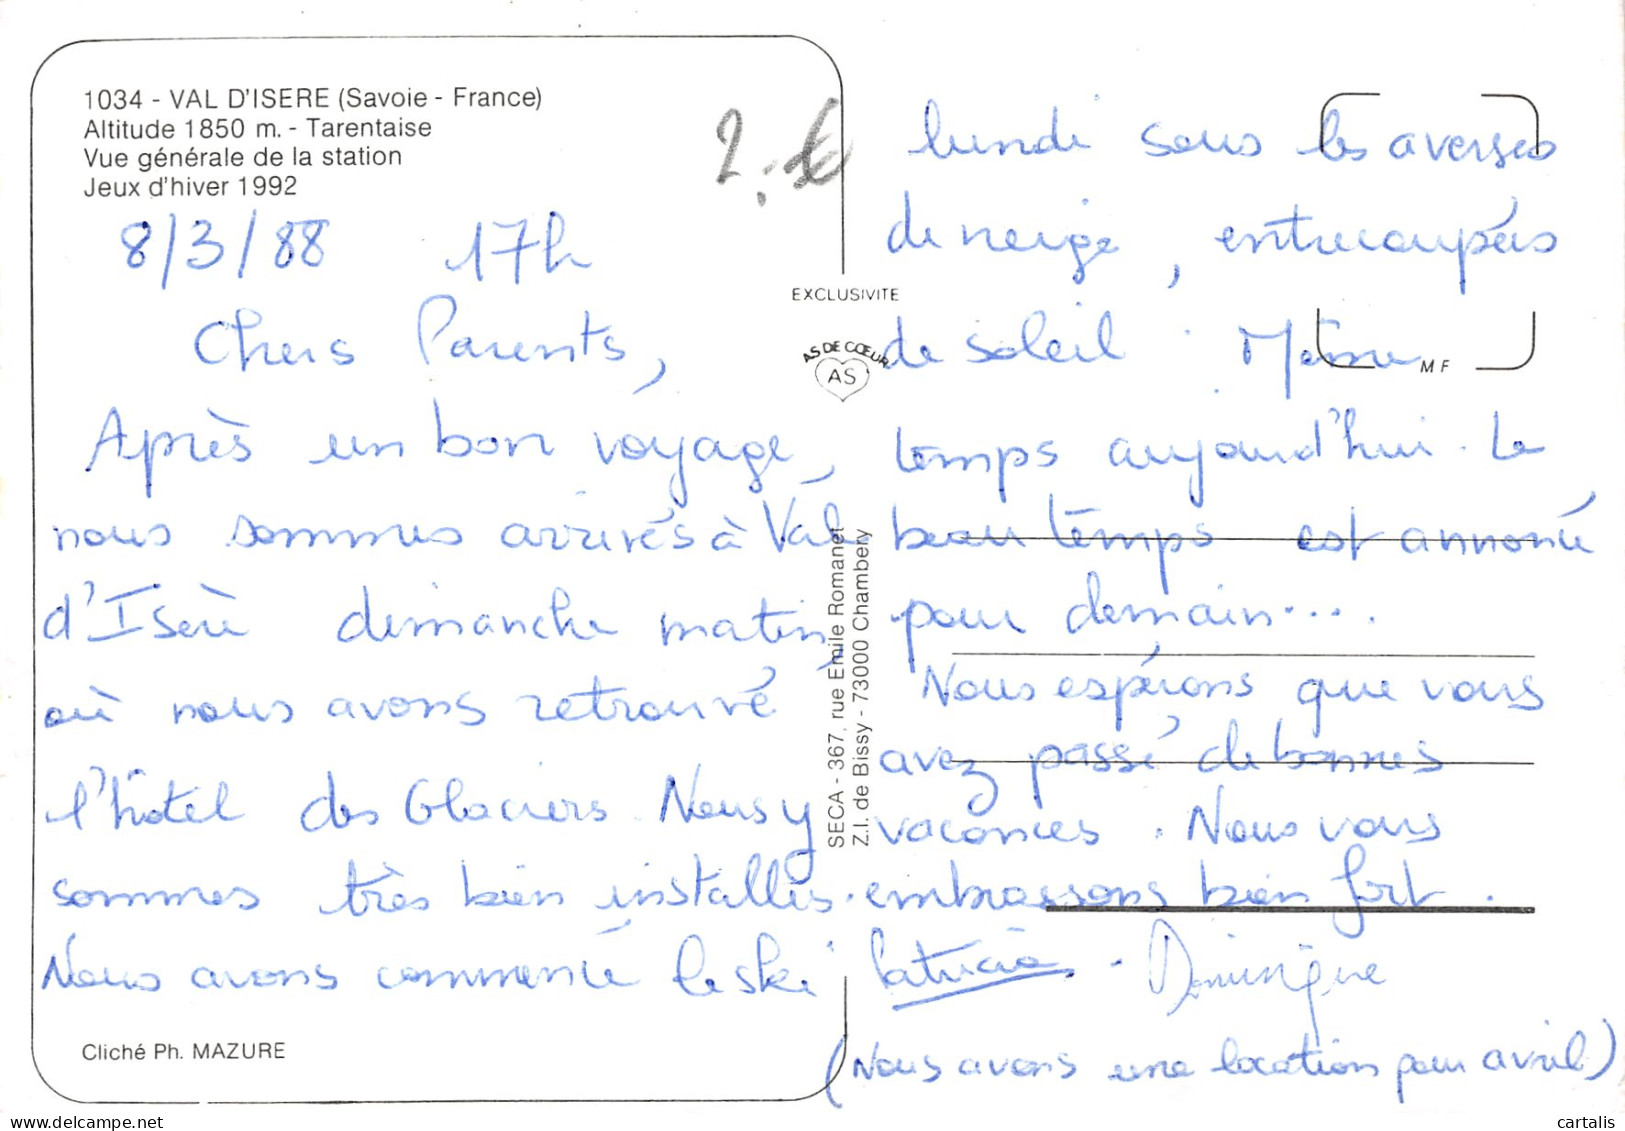 1034 - VAL D'ISERE (Savoie - France)
Altitude 1850 m. - Tarentaise
Vue générale de la station
Jeux d'hiver 1992
2.-€
8/3/88 17h
Chers Parents,
Après un bon voyage,
nous sommes arrivés à Val
d'Isère dimanche matin,
où nous avons retrouvé
l'hôtel des Glaciers. Nous y
sommes très bien installés.
Nous avons commencé le ski
Cliché Ph. MAZURE
EXCLUSIVITE
AS DE CŒUR
AS
SECA - 367, rue Emile Romanet
Z.I. de Bissy - 73000 Chambery
lundi sous les averses
de neige, entrecoupées
de soleil. Même
MF
temps aujourd'hui. Le
beau temps est annoncé
pour demain....
Nous espérons que vous
avez passé de bonnes
vacances. Nous vous
embrassons bien fort.
Patricia. - Dominique
(Nous avons une location pour avril)
cartalis